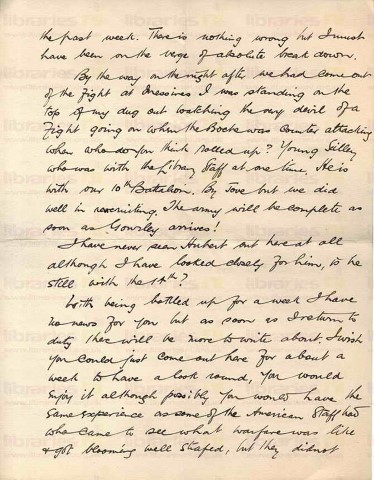 the past week. There is nothing wrong but I must
have been on the verge of absolute break down.
By the way on the night after we had come out
of the fight at Messines I was standing on the
top of my dug out watching the very devil of a
fight going on when the Boche was counter attacking
when who do you think rolled up? Young Silley
who was with the Library Staff at one time. He is
with our 10th Batalion. By Jove but we did
well in recruiting. The army will be complete as
soon as Gowsley arrives!
I have never seen Hubert out here at all
although I have looked closely for him, is he
still with the 11th?
With being bottled up for a week I have
no news for you but as soon as I return to
duty there will be more to write about. I wish
you could just come out here for about a
week to have a look round, you would
enjoy it although possibly you would have the
same experience as some of the American Staff had
who came to see what warfare was like
& got blooming well shafed, but they did not
libraries